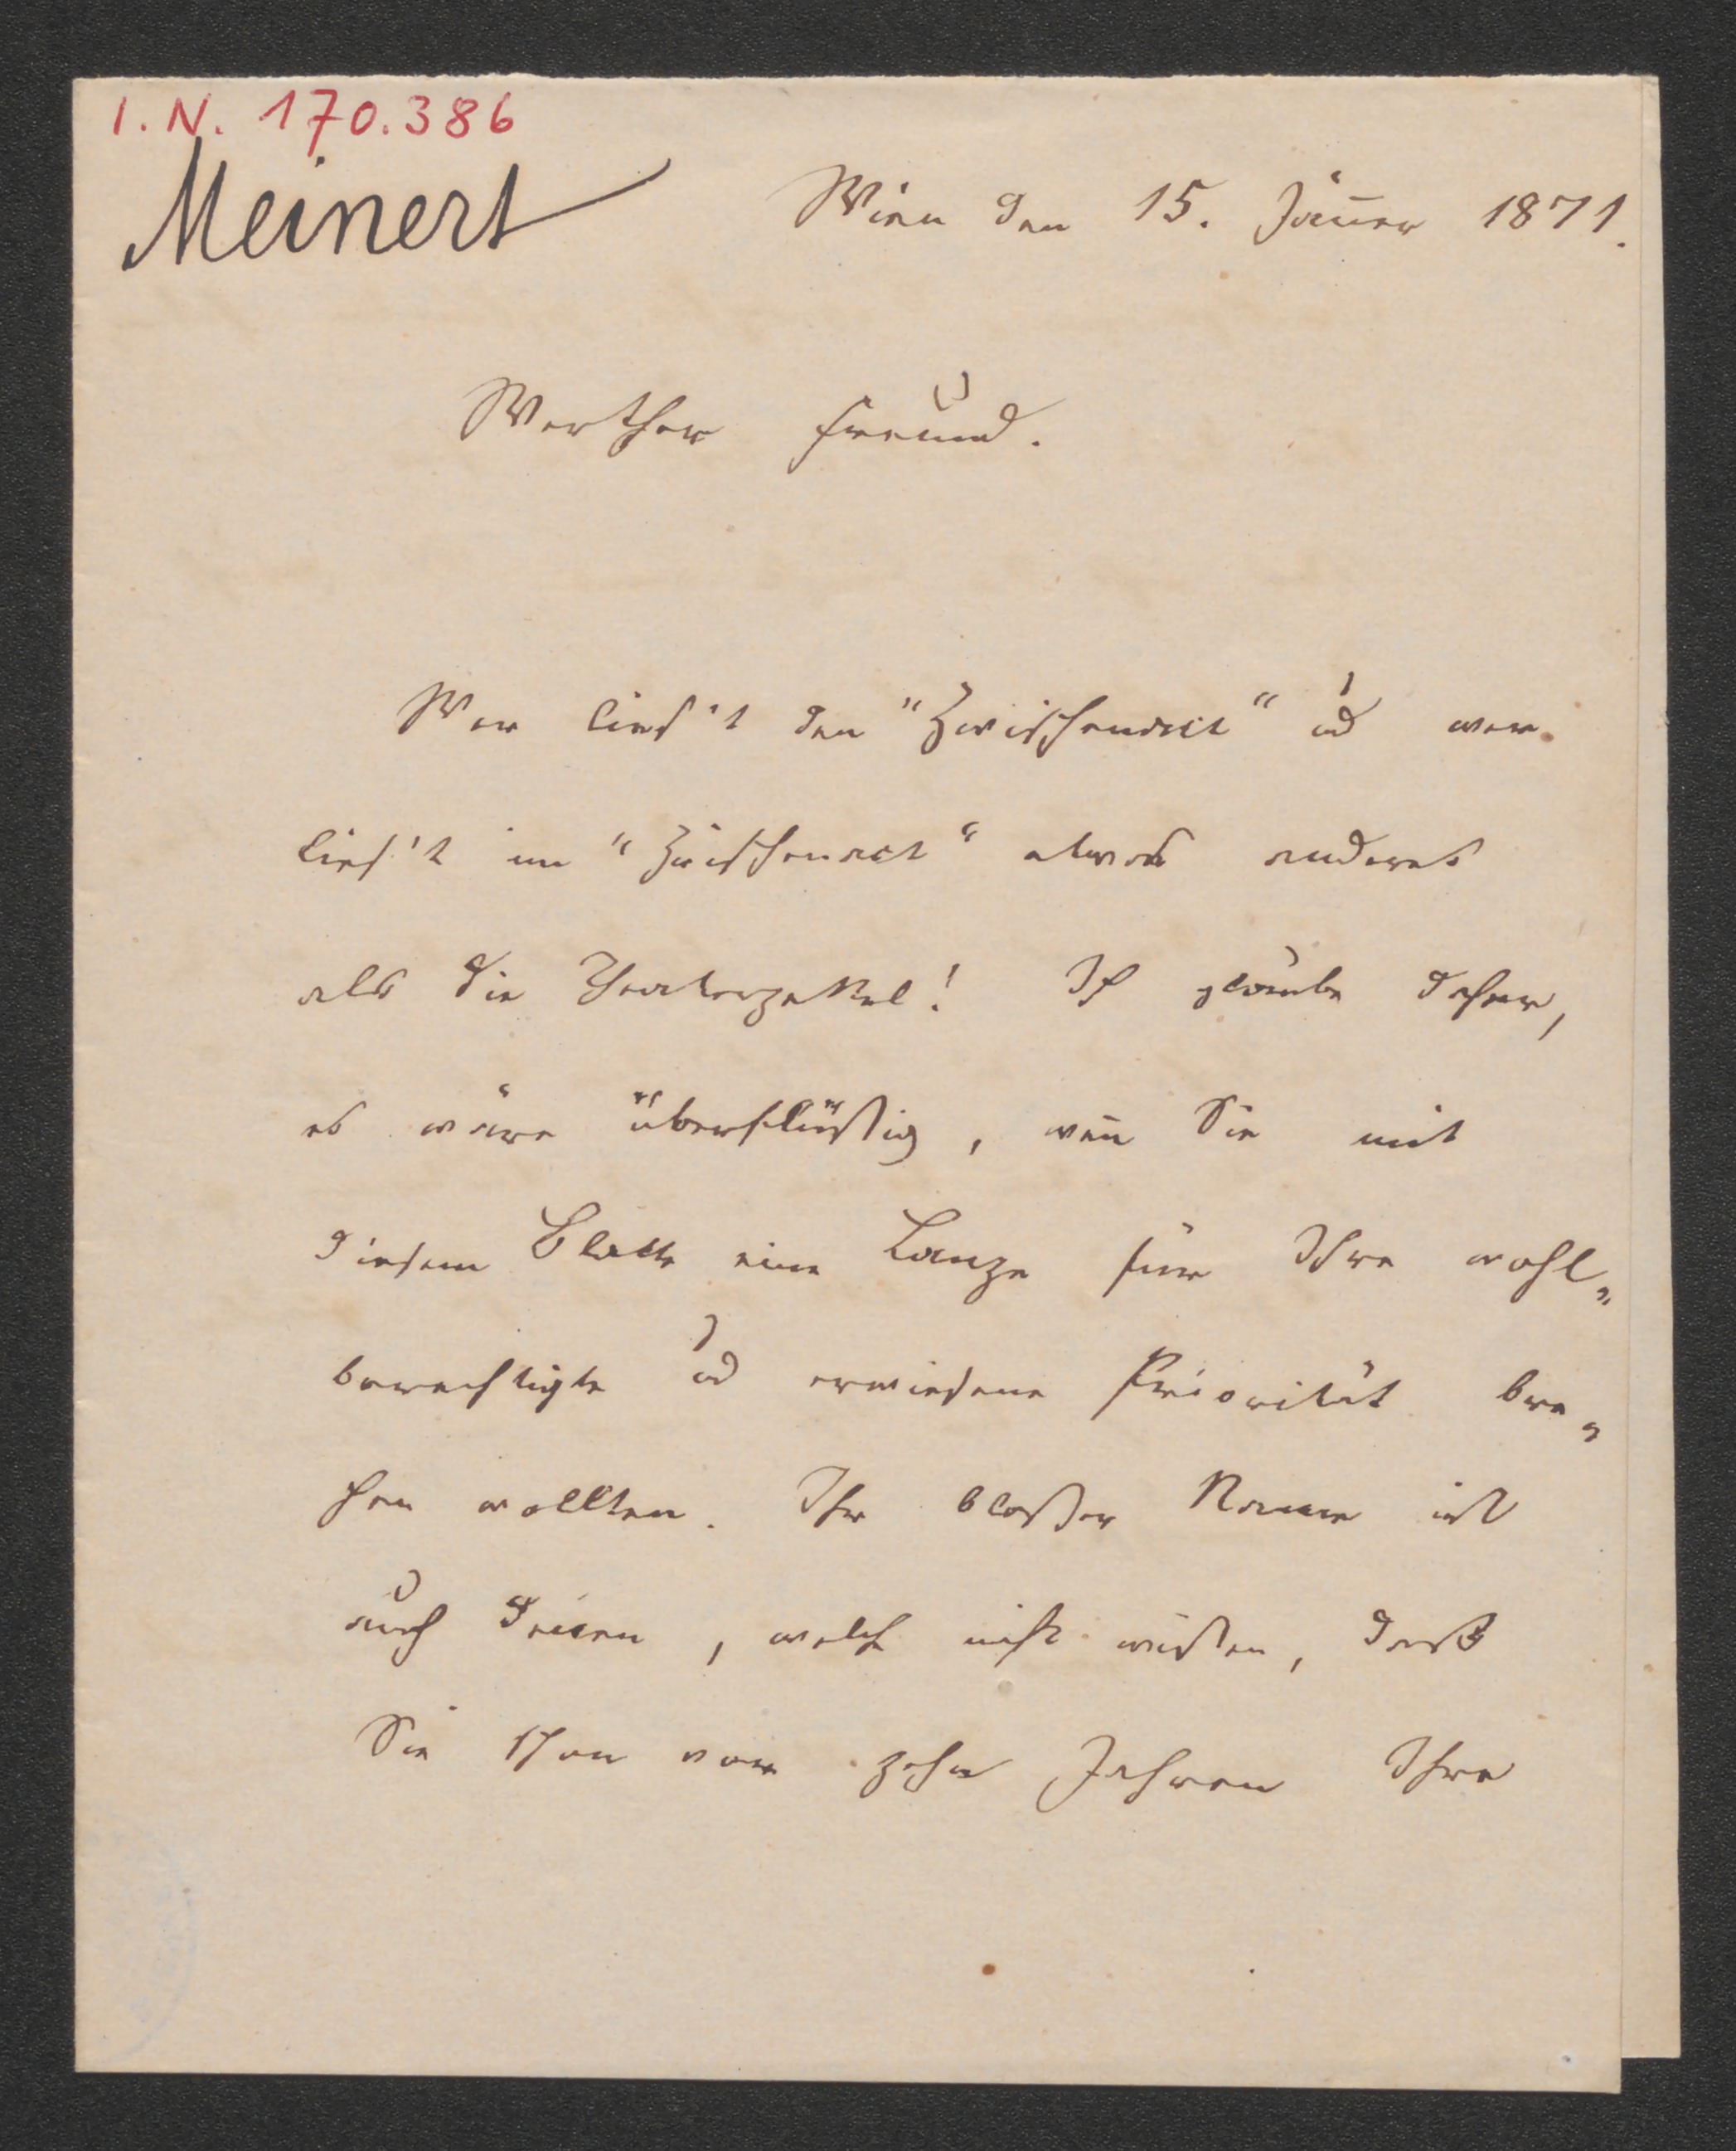 I. N. 170.386
Meinert
Wien den 15. Jäner 1871.
Werther Freund.
Wer lies't den "Zwischenact" ud wer
lies't im "Zwischenact" etwas anderes
als die Theaterzettel! Ich glaube daher,
es wäre überflüßig, wen̄ Sie mit
diesem Blatte eine Lanze für Ihre wohl„
berechtigte ud erwiesene Priorität bre„
chen wollten. Ihr bloßer Name ist
auch denen, welche nicht wissen, daß
Sie schon vor zehn Jahren Ihre